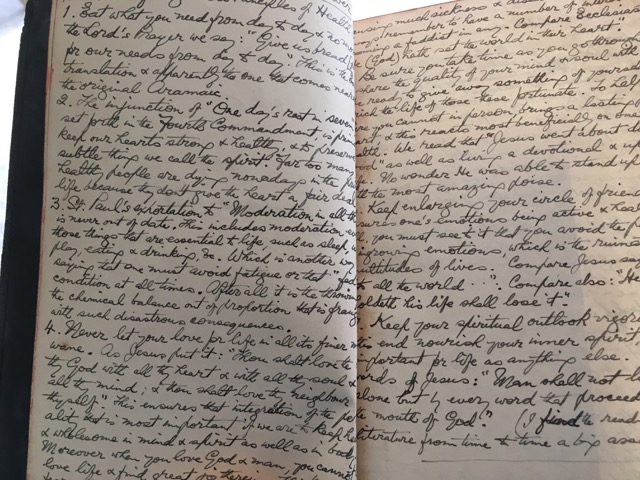 Principles of Health
1. Eat what you need from day to day & no more
the Lord's Prayer we say: "Give us bread
for our needs from day to day". This is the
translation & apparently the one that comes nearest
the original Aramaic.
2. The injunction of "One day's rest in seven
set forth in the Fourth Commandment, is
keep our hearts strong & healthy, & to preserve
subtle thing we call the spirit. Far too many
health people are dying nowadays in the
life because they don't give the heart a fair deal
3. St. Paul's exhortation to "Moderation in all
is never out of date. This includes moderation
those things that are essential to life, such as sleep,
play, eating & drinking, &c. Which is another way
saying that one must avoid fatigue or that
condition at all times. After all it is the throwing
the chemical balance out of proportion that is
with such disastrous consequences.
4. Never let your love for life in all its finer
wane. As Jesus put it: "Thou shalt love the
thy God with all the heart & with all the soul &
all the mind; & thou shalt love thy neighbour
thyself." This ensures that integration of the
that is most important if we are to keep
& wholesome in mind & spirit as well as in body
Moreover when you love God & man, you cannot
love life & find great
much sickness &
remember to have a number of
being a faddist in any. Compare Ecclesias
(God) hath set the world in their heart".
Be sure you take time as you go through
where the quality of your mind or soul
ready to give away something of yourself
to the life of those less fortunate. To
you cannot in person, brings a lasting
& this reacts most beneficially on one
We read that "Jesus went about
" as well as living a devotional &
No wonder He was able to stand up
the most amazing poise.
Keep enlarging your circle of friends
ensures one's emotions being active &
you must see to it that you avoid the
emotions, which is the ruin
multitudes of lives. Compare Jesus
to all the world . . ." Compare also: "He
holdeth his life shall lose it".
Keep your spiritual outlook vigorous
this end nourish your inner spirit,
important for life as anything else.
words of Jesus: "Man shall not
alone but by every word that proceed
mouth of God." (I find the
literature from time to time a big